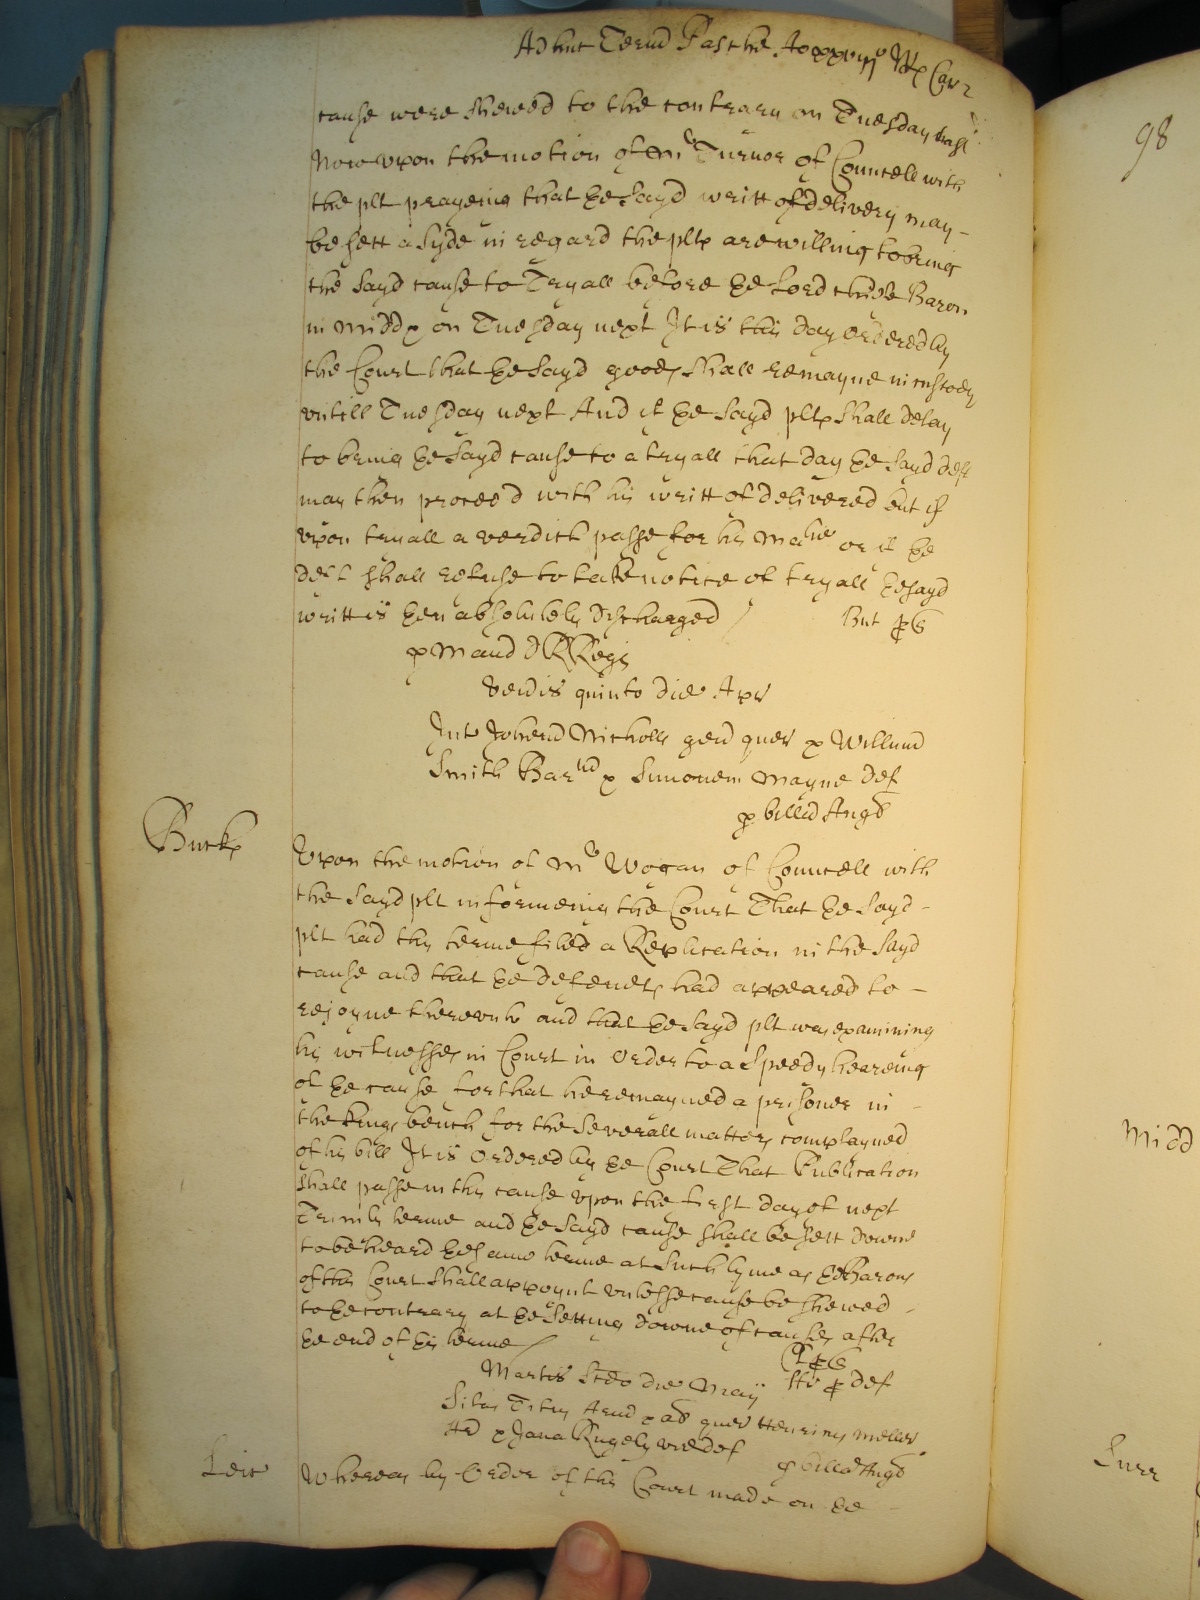 Adhuc Termd Pasche Ao xxviijo Rx Car 2
cause were shewed to the contrary on Tuesday last
Now vpon the motion of Mr Turnor of Councell with
the plt prayeing that ye sayd writt of delivery may -
be sett asyde in regard the pltes are willing to bring
the sayd cause to Tryall before ye Lord chiefe Baron
in Middx on Tuesday next It is this day Ordered by
the Court that ye sayd goods shall remayne in custody
vntill Tuesday next And if ye sayd pltes shall delay
to bring ye sayd cause to a tryall that day ye sayd deft
may then proceed with his writt of delivered but if
vpon tryall a verdict passe for his Matie or if ye
deft shall refuse to take notice of tryall ye sayd
writt is yen absolutely discharged
p Mand D R Regis
Veneris quinto die Apr
Int Johem Nicholls gen quer & Willum
Smith Barnd & Simonem Mayne def
p billa Angd
Bucks
Vpon the motion of Mr Wogan of Councell with
the sayd plt informeing the Court That ye sayd -
plt had this terme filed a Replication in the sayd
cause and that ye defendts had appeared to -
rejoyne therevnto and that ye sayd plt was examining
his witnesses in Court in Order to a speedy heareing
of ye cause for that he remayned a prisoner in -
the kings bench for the severall matters complayned
of his bill It is Ordered by ye Court That Publication
shall passe in this cause vpon the first day of next
Trinity terme and ye sayd cause shall be sett downe
to be heard ye same terme at such tyme as ye Barons
of this Court shall appoynt vnlesse cause be shewed -
to ye contrary at ye setting downe of causes after
ye end of this terme
Martis Scdo die Maij
Silas Titus Arm & al quer Henricus Meller
Ar & Jana Rugely vid def
p billa Angd
Leic
Whereas by Order of this Court made on ye -
98
Midd
Surr